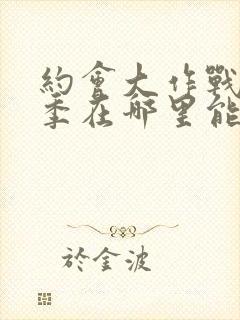 約會大作戰
季在哪里能
於金波